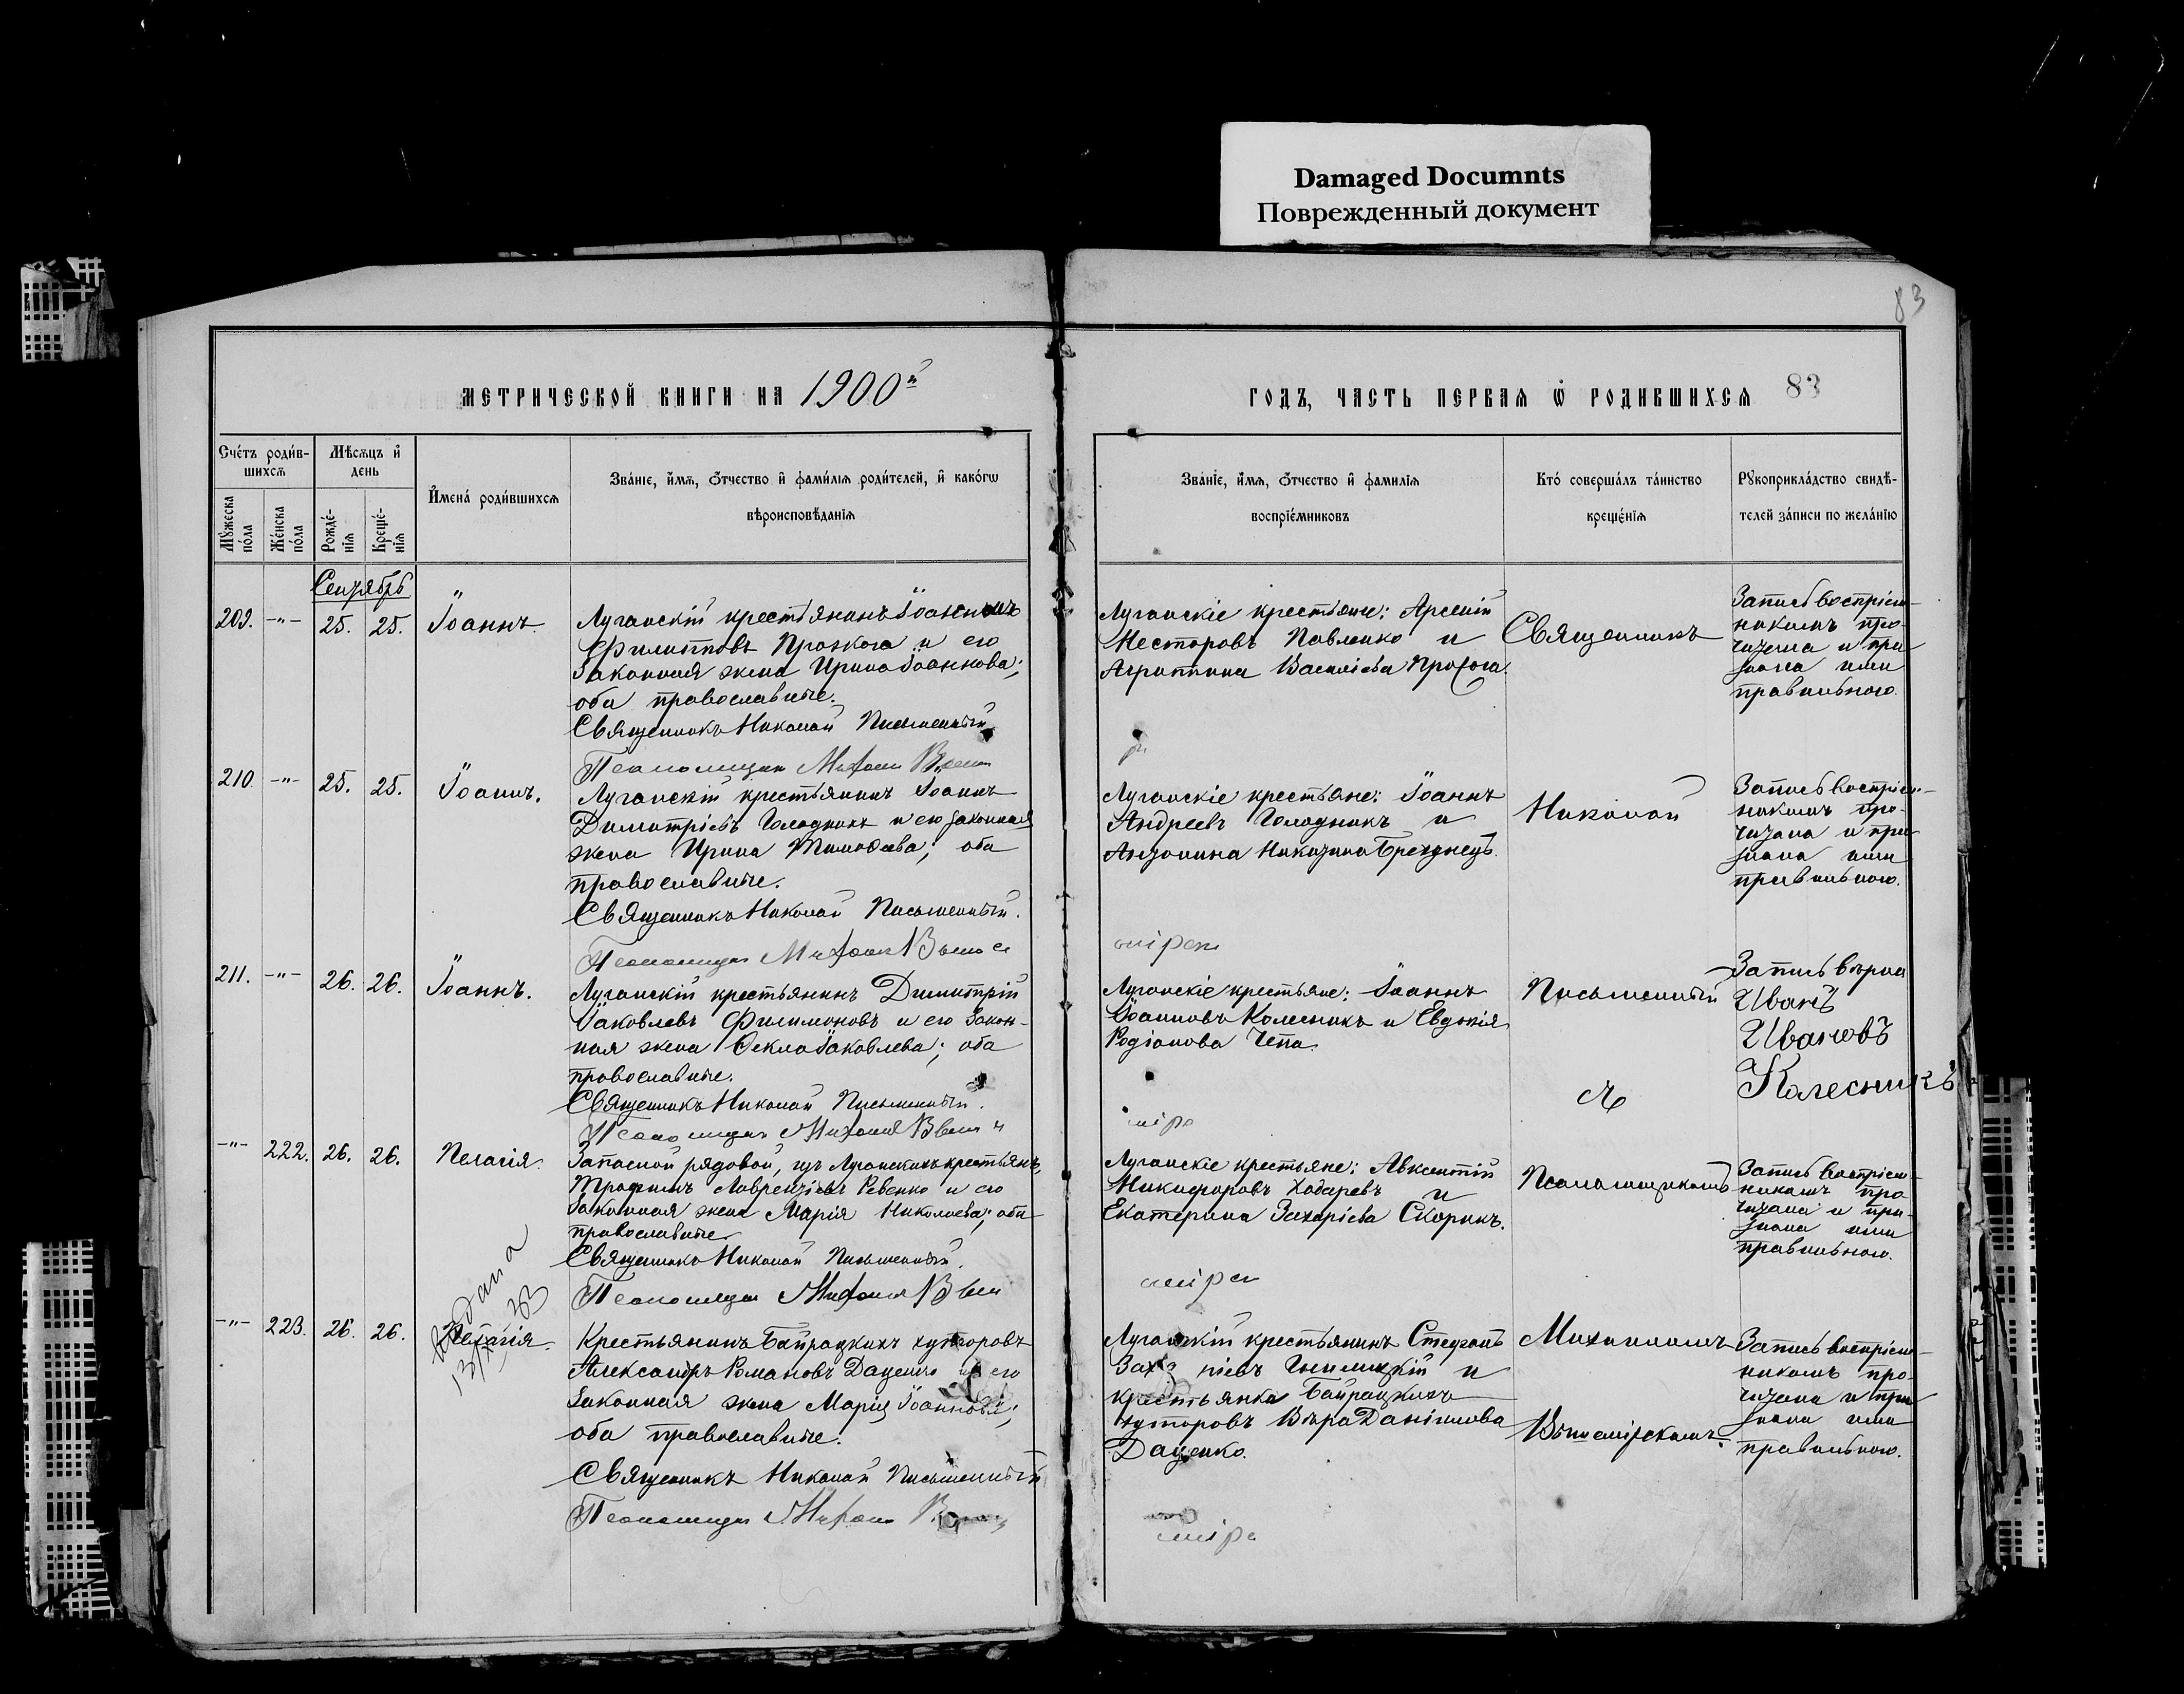 Damaged Documnts
Поврежденный документ
83
МЕТРИЧЕСКОЙ КНИГИ НА 1900й
ГОДЪ, ЧАСТЬ ПЕРВАЯ Ѡ РОДИВШИХСЯ 83
Счетъ родив-
шихся
Мѣсяцъ и
день
Мужеска
пола
Женска
пола
Рожде-
нія
Креще-
нія
Имена родившихся
Званіе, имя, отчество и фамилія родителей, и какогѡ
вѣроисповѣданія
Званіе, имя, отчество и фамилія
воспріемниковъ
Кто совершалъ таинство
крещенія
Рукоприкладство свидѣ-
телей записи по желанію
Сентябрь
209. -"- 25. 25. Іоаннъ.
Луганскій крестьянинъ Іоаннъ
Филипповъ и его
Законная жена Ирина Іоаннова;
оба православные.
Священникъ Николай Письменный
Псаломщикъ
Луганскіе крестьяне: Арсеній
Несторовъ Павленко и
Агриппина Василіева
Священникъ
Запись воспріем-
никамъ про-
читана и при
знана ими
правильною.
210. -"- 25. 25. Іоаннъ.
Луганскій крестьянинъ Іоаннъ
Димитріевъ Голодникъ и его законная
жена Ирина Тимоѳеева; оба
православные.
Священникъ Николай Письменный.
Псаломщикъ
Луганскіе крестьяне: Іоаннъ
Андреевъ Голодникъ и
Антонина Никитина
Николай
Запись воспріем-
никамъ про-
читана и при
знана ими
правильною.
211. -"- 26. 26. Іоаннъ.
Луганскій крестьянинъ Димитрій
Іаковлевъ Филимоновъ и его закон-
ная жена Ѳекла Іаковлева; оба
православные.
Священникъ Николай Письменный.
Псаломщикъ
Луганскіе крестьяне: Іоаннъ
Іоанновъ Колесникъ и Евдокія
Родіонова Чепа.
Письменный
съ
Запись вѣрна
Иванъ
Ивановъ
Колесникъ
-"- 222. 26. 26. Пелагія.
Запасной рядовой, изъ Луганскихъ крестьянъ,
Трофимъ Лаврентіевъ Ревенко и его
Законная жена Марія Николаева; оба
православные.
Священникъ Николай Письменный.
Псаломщикъ
Луганскіе крестьяне: Авксентій
Никифоровъ Ходаревъ и
Екатерина Захаріева Скорикъ.
Псаломщикомъ
Запись воспріем-
никамъ про
читана и при-
знана ими
правильною.
-"- 223. 26. 26. Пелагія.
Крестьянинъ Байрацкихъ хуторовъ
Александръ Романовъ Даценко и его
Законная жена Марія Іоаннова;
оба православные.
Священникъ Николай Письменный
Псаломщикъ
Луганскій крестьянинъ Стефанъ
и
крестьянка Байрацкихъ
хуторовъ Вѣра Даніилова
Даценко.
Михаиломъ
Запись воспріем-
никамъ про-
читана и при
знана ими
правильною.